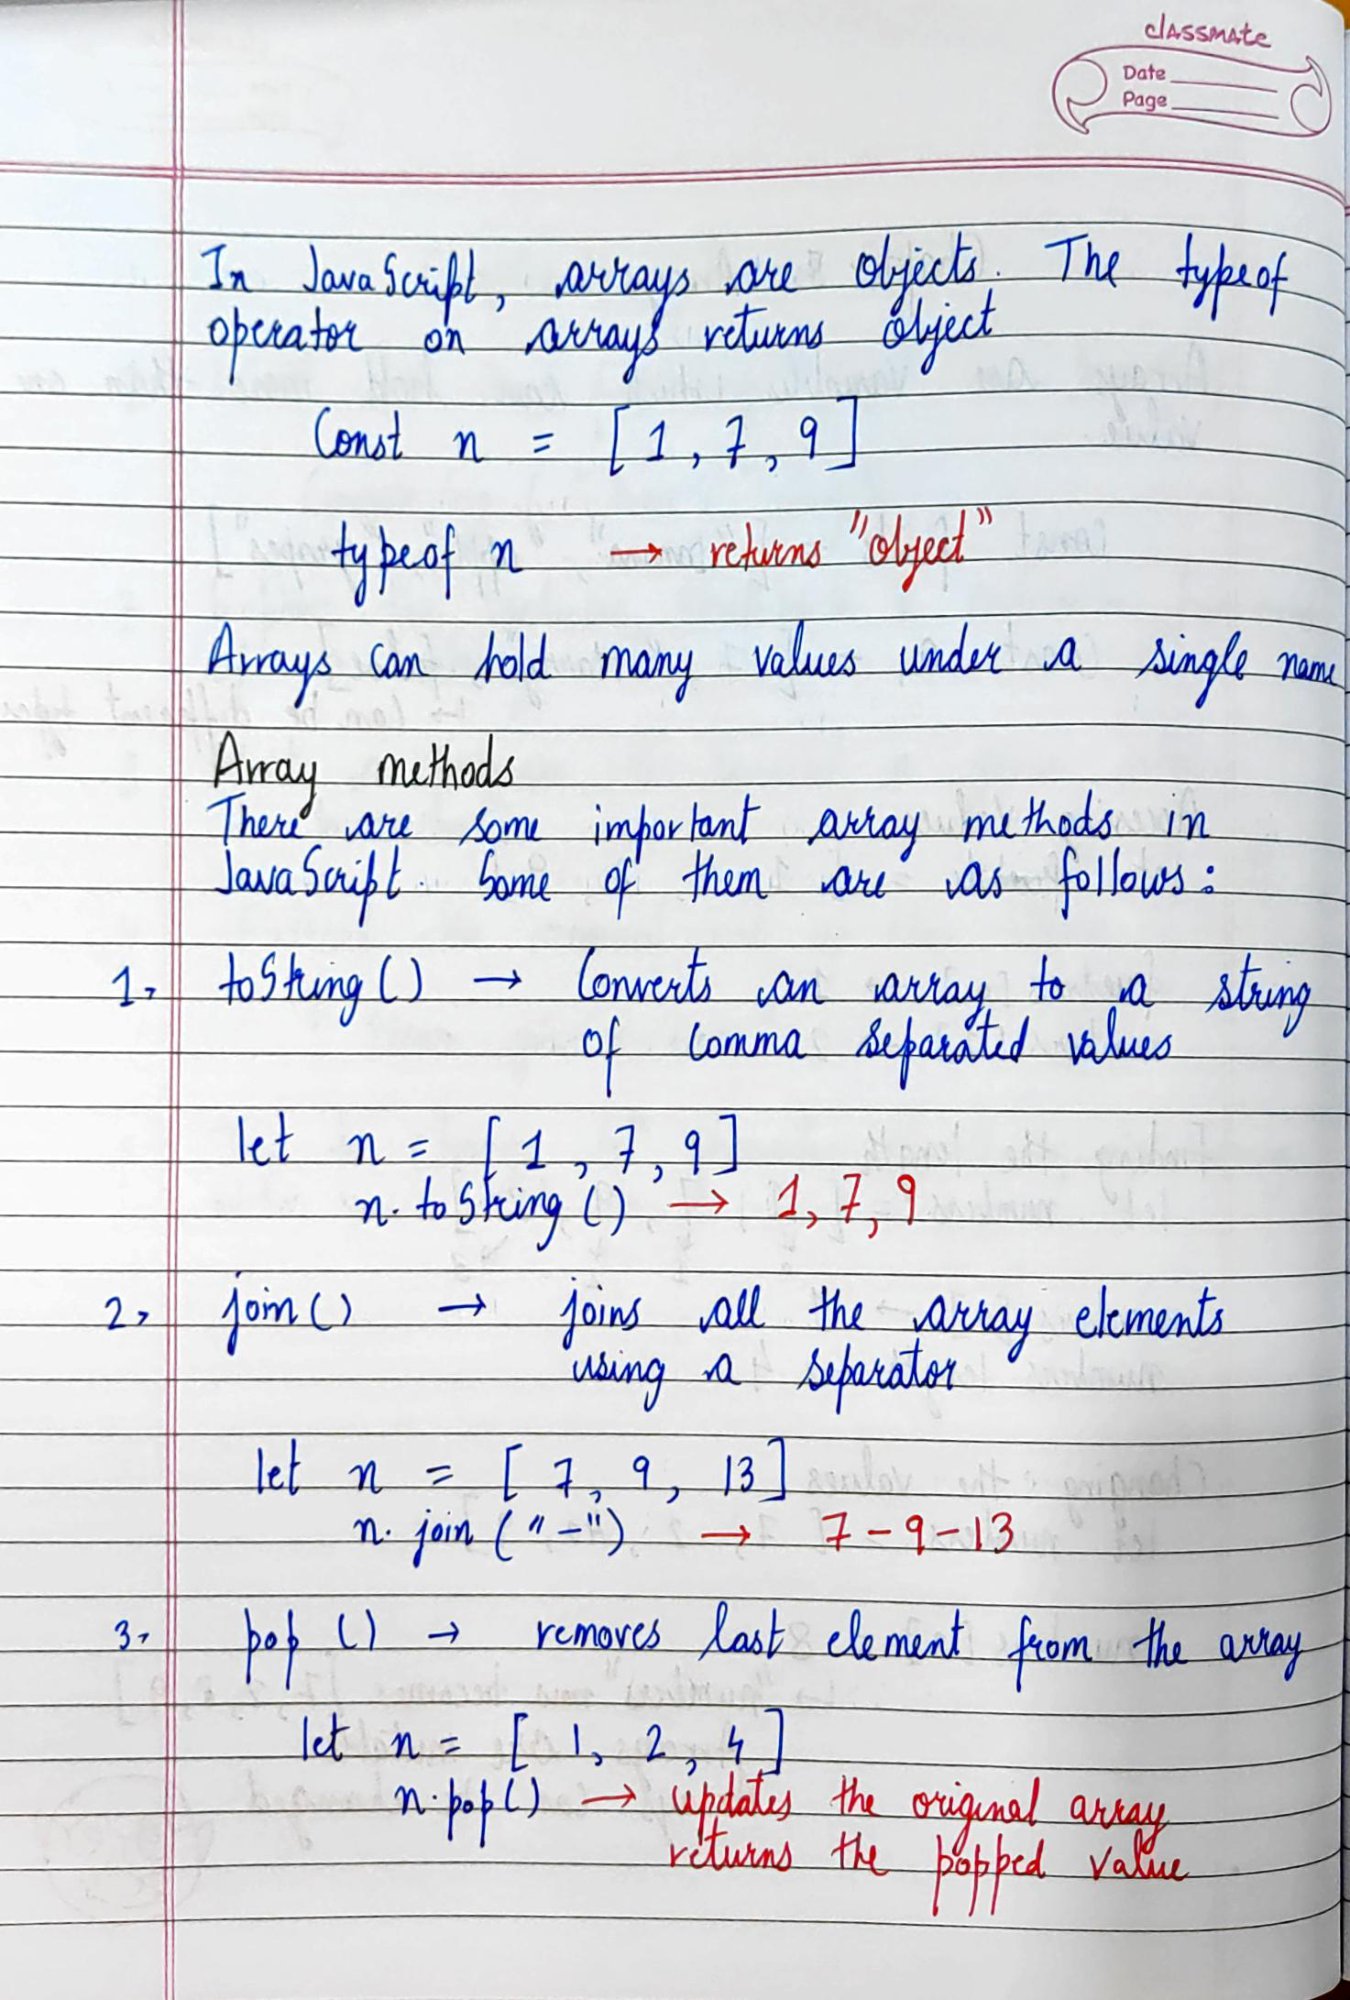 classmate
Date
Page
In JavaScript, arrays are objects. The typeof
operator on arrays returns object
Const n = [1, 7, 9]
typeof n → returns "object"
Arrays can hold many values under a single name
Array methods
There are some important array methods in
JavaScript. Some of them are as follows:
1. toString() → Converts an array to a string
of comma separated values
let n = [1, 7, 9]
n.toString() → 1, 7, 9
2. join() → joins all the array elements
using a separator
let n = [7, 9, 13]
n.join("-") → 7-9-13
3. pop() → removes last element from the array
let n = [1, 2, 4]
n.pop() → updates the original array
returns the popped value